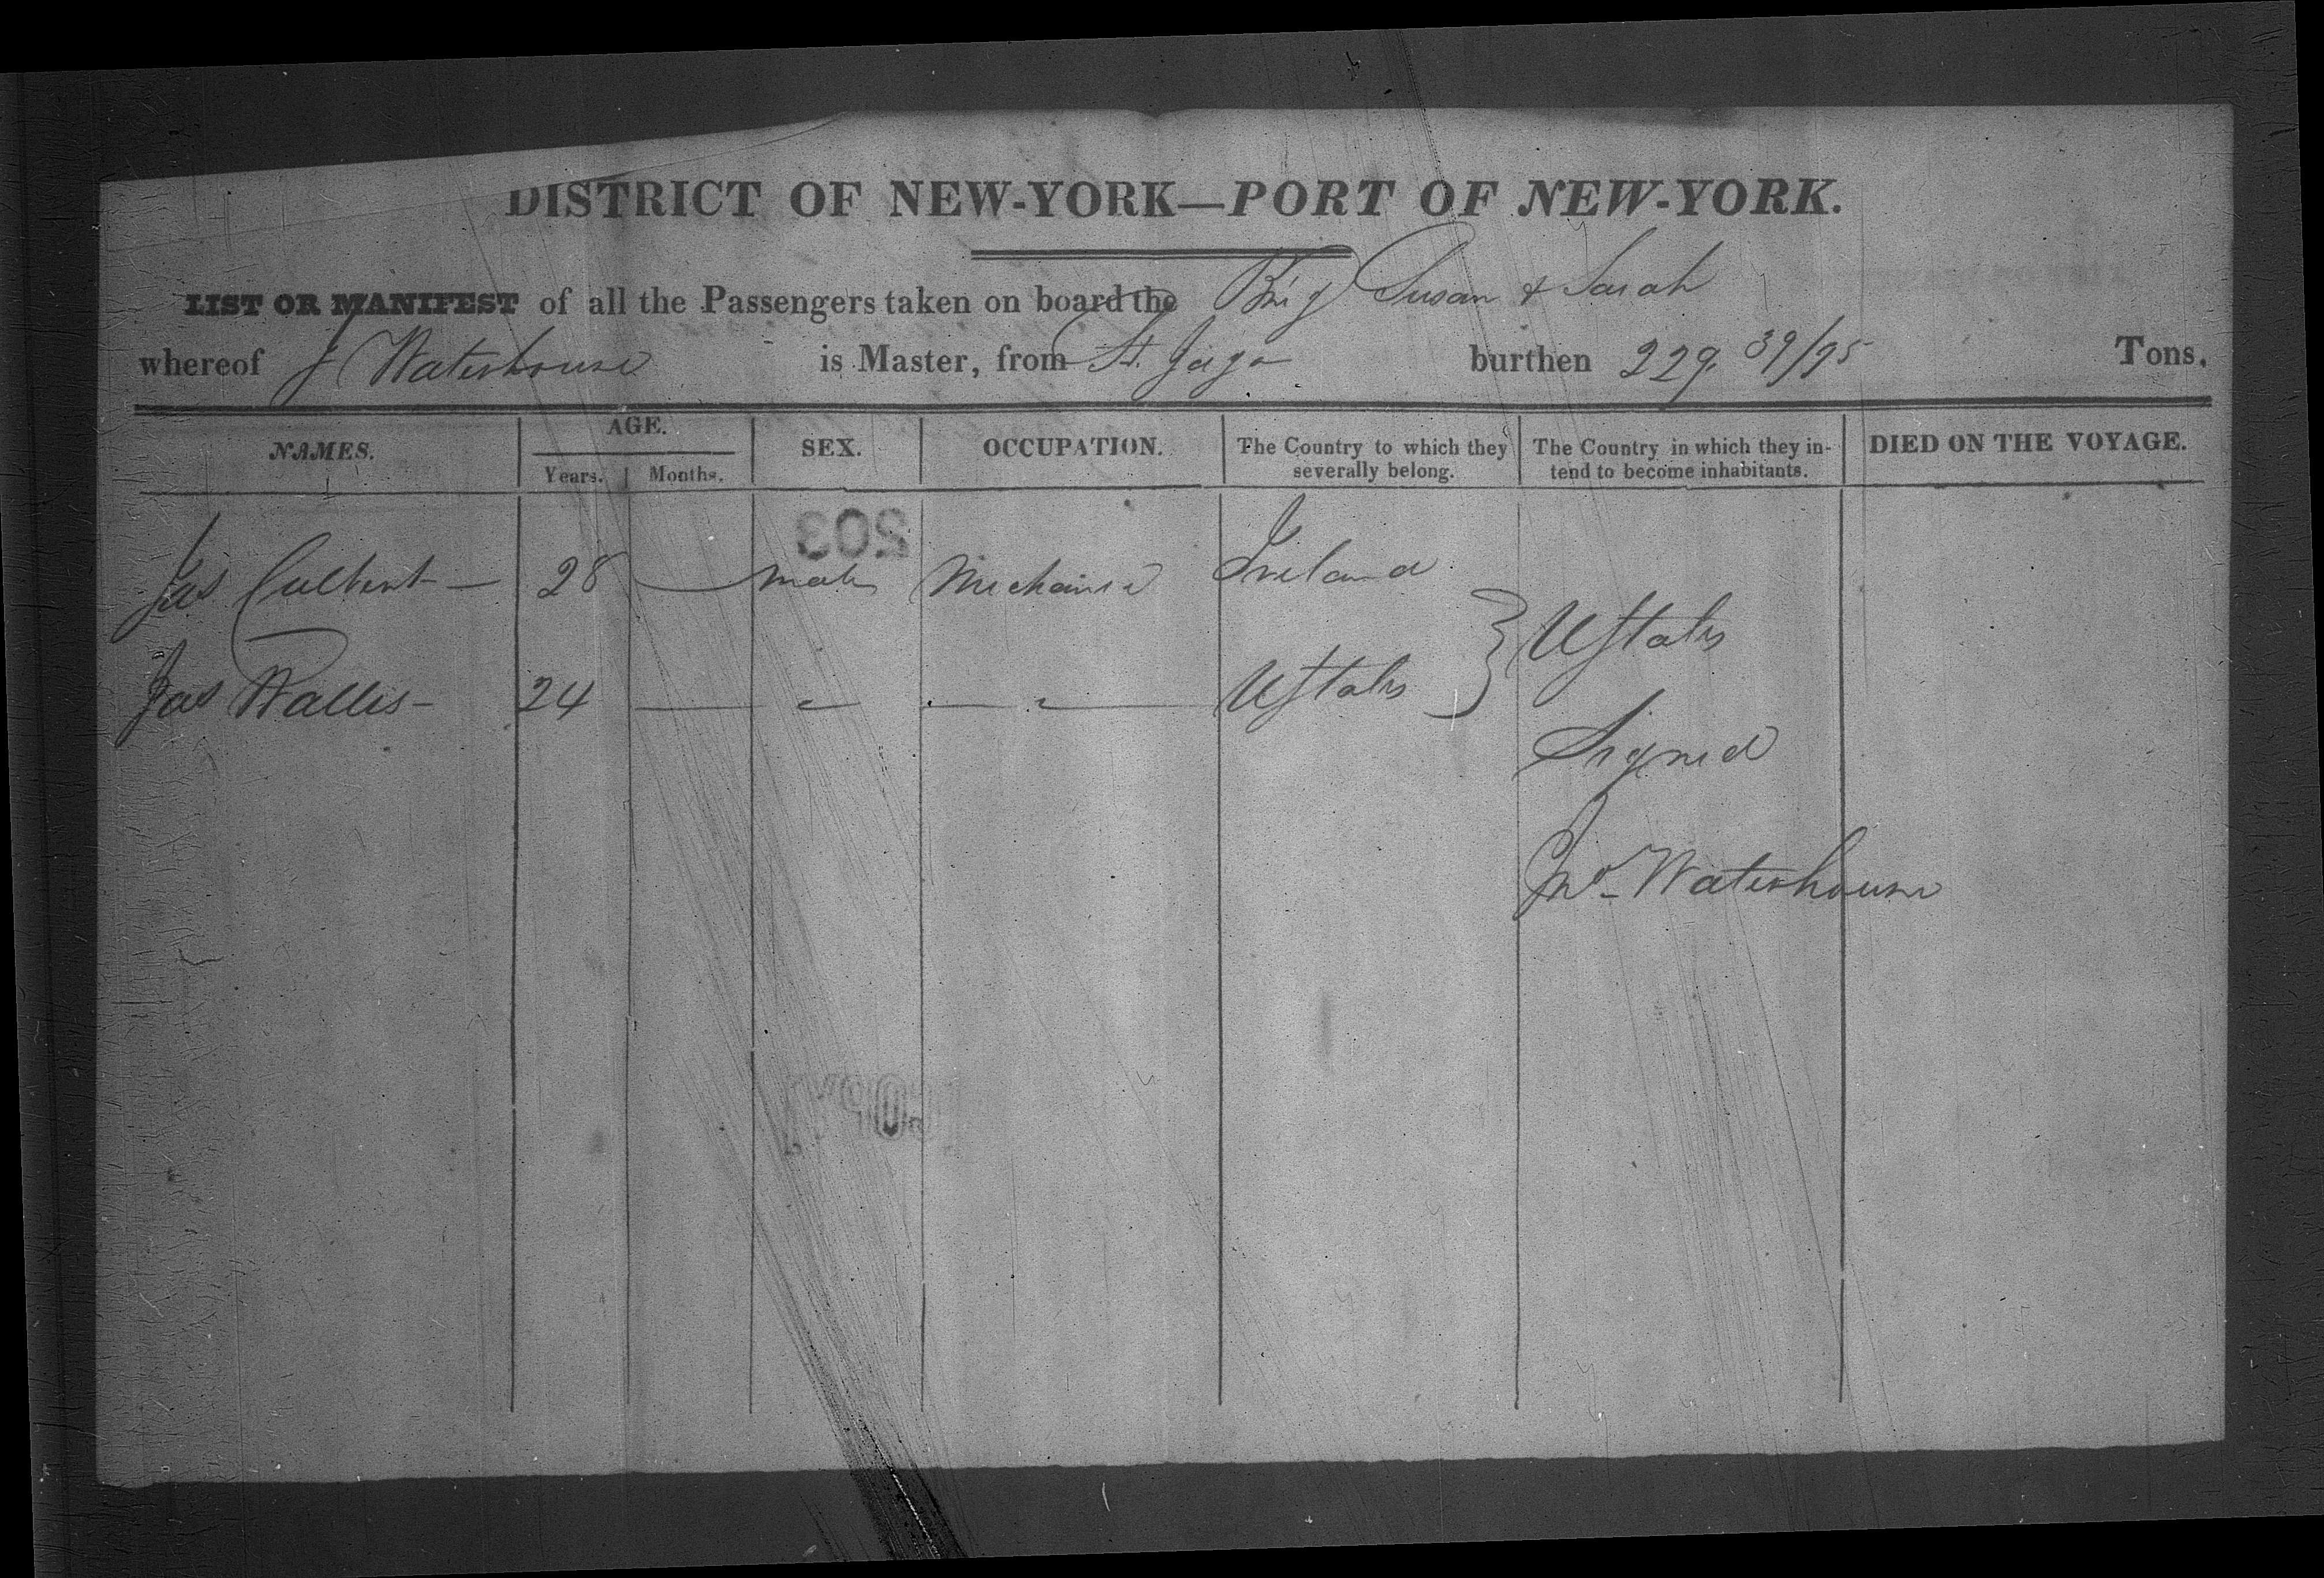 DISTRICT OF NEW-YORK—PORT OF NEW-YORK.
LIST OR MANIFEST of all the Passengers taken on board the Brig Susan & Sarah
whereof J Waterhouse is Master, from St. Jago burthen 229. 39/95 Tons.
NAMES. AGE. SEX. OCCUPATION. The Country to which they severally belong. The Country in which they intend to become inhabitants. DIED ON THE VOYAGE.
Years. Months.
203
Jas Culbert — 28 — male Mechanic Ireland
UStates
Jas Wallis - 24 — " — " — UStates
Signed
Jno. Waterhouse
COPY